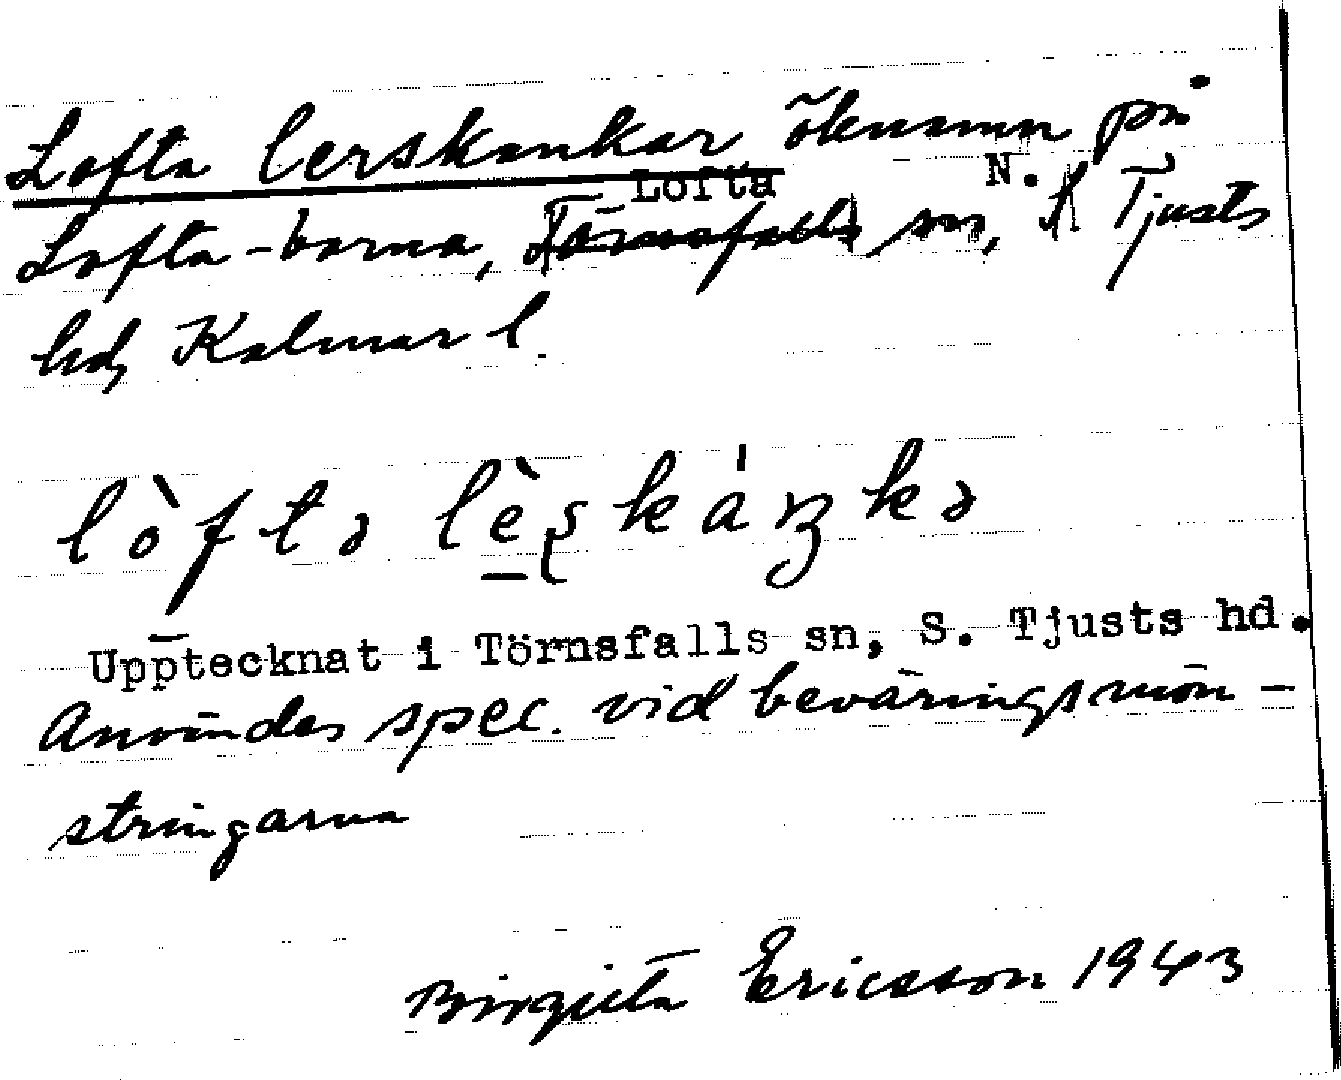 Lofta lerskankar öknamn på
Lofta-borna, Törnsfalls Lofta sn, S N. Tjusts
hd, Kalmar l.
lòftə lèʂkáŋkə
Upptecknat i Törnsfalls sn, S. Tjusts hd.
Användes spec. vid beväringsmön-
stringarna
Birgitta Ericsson 1943